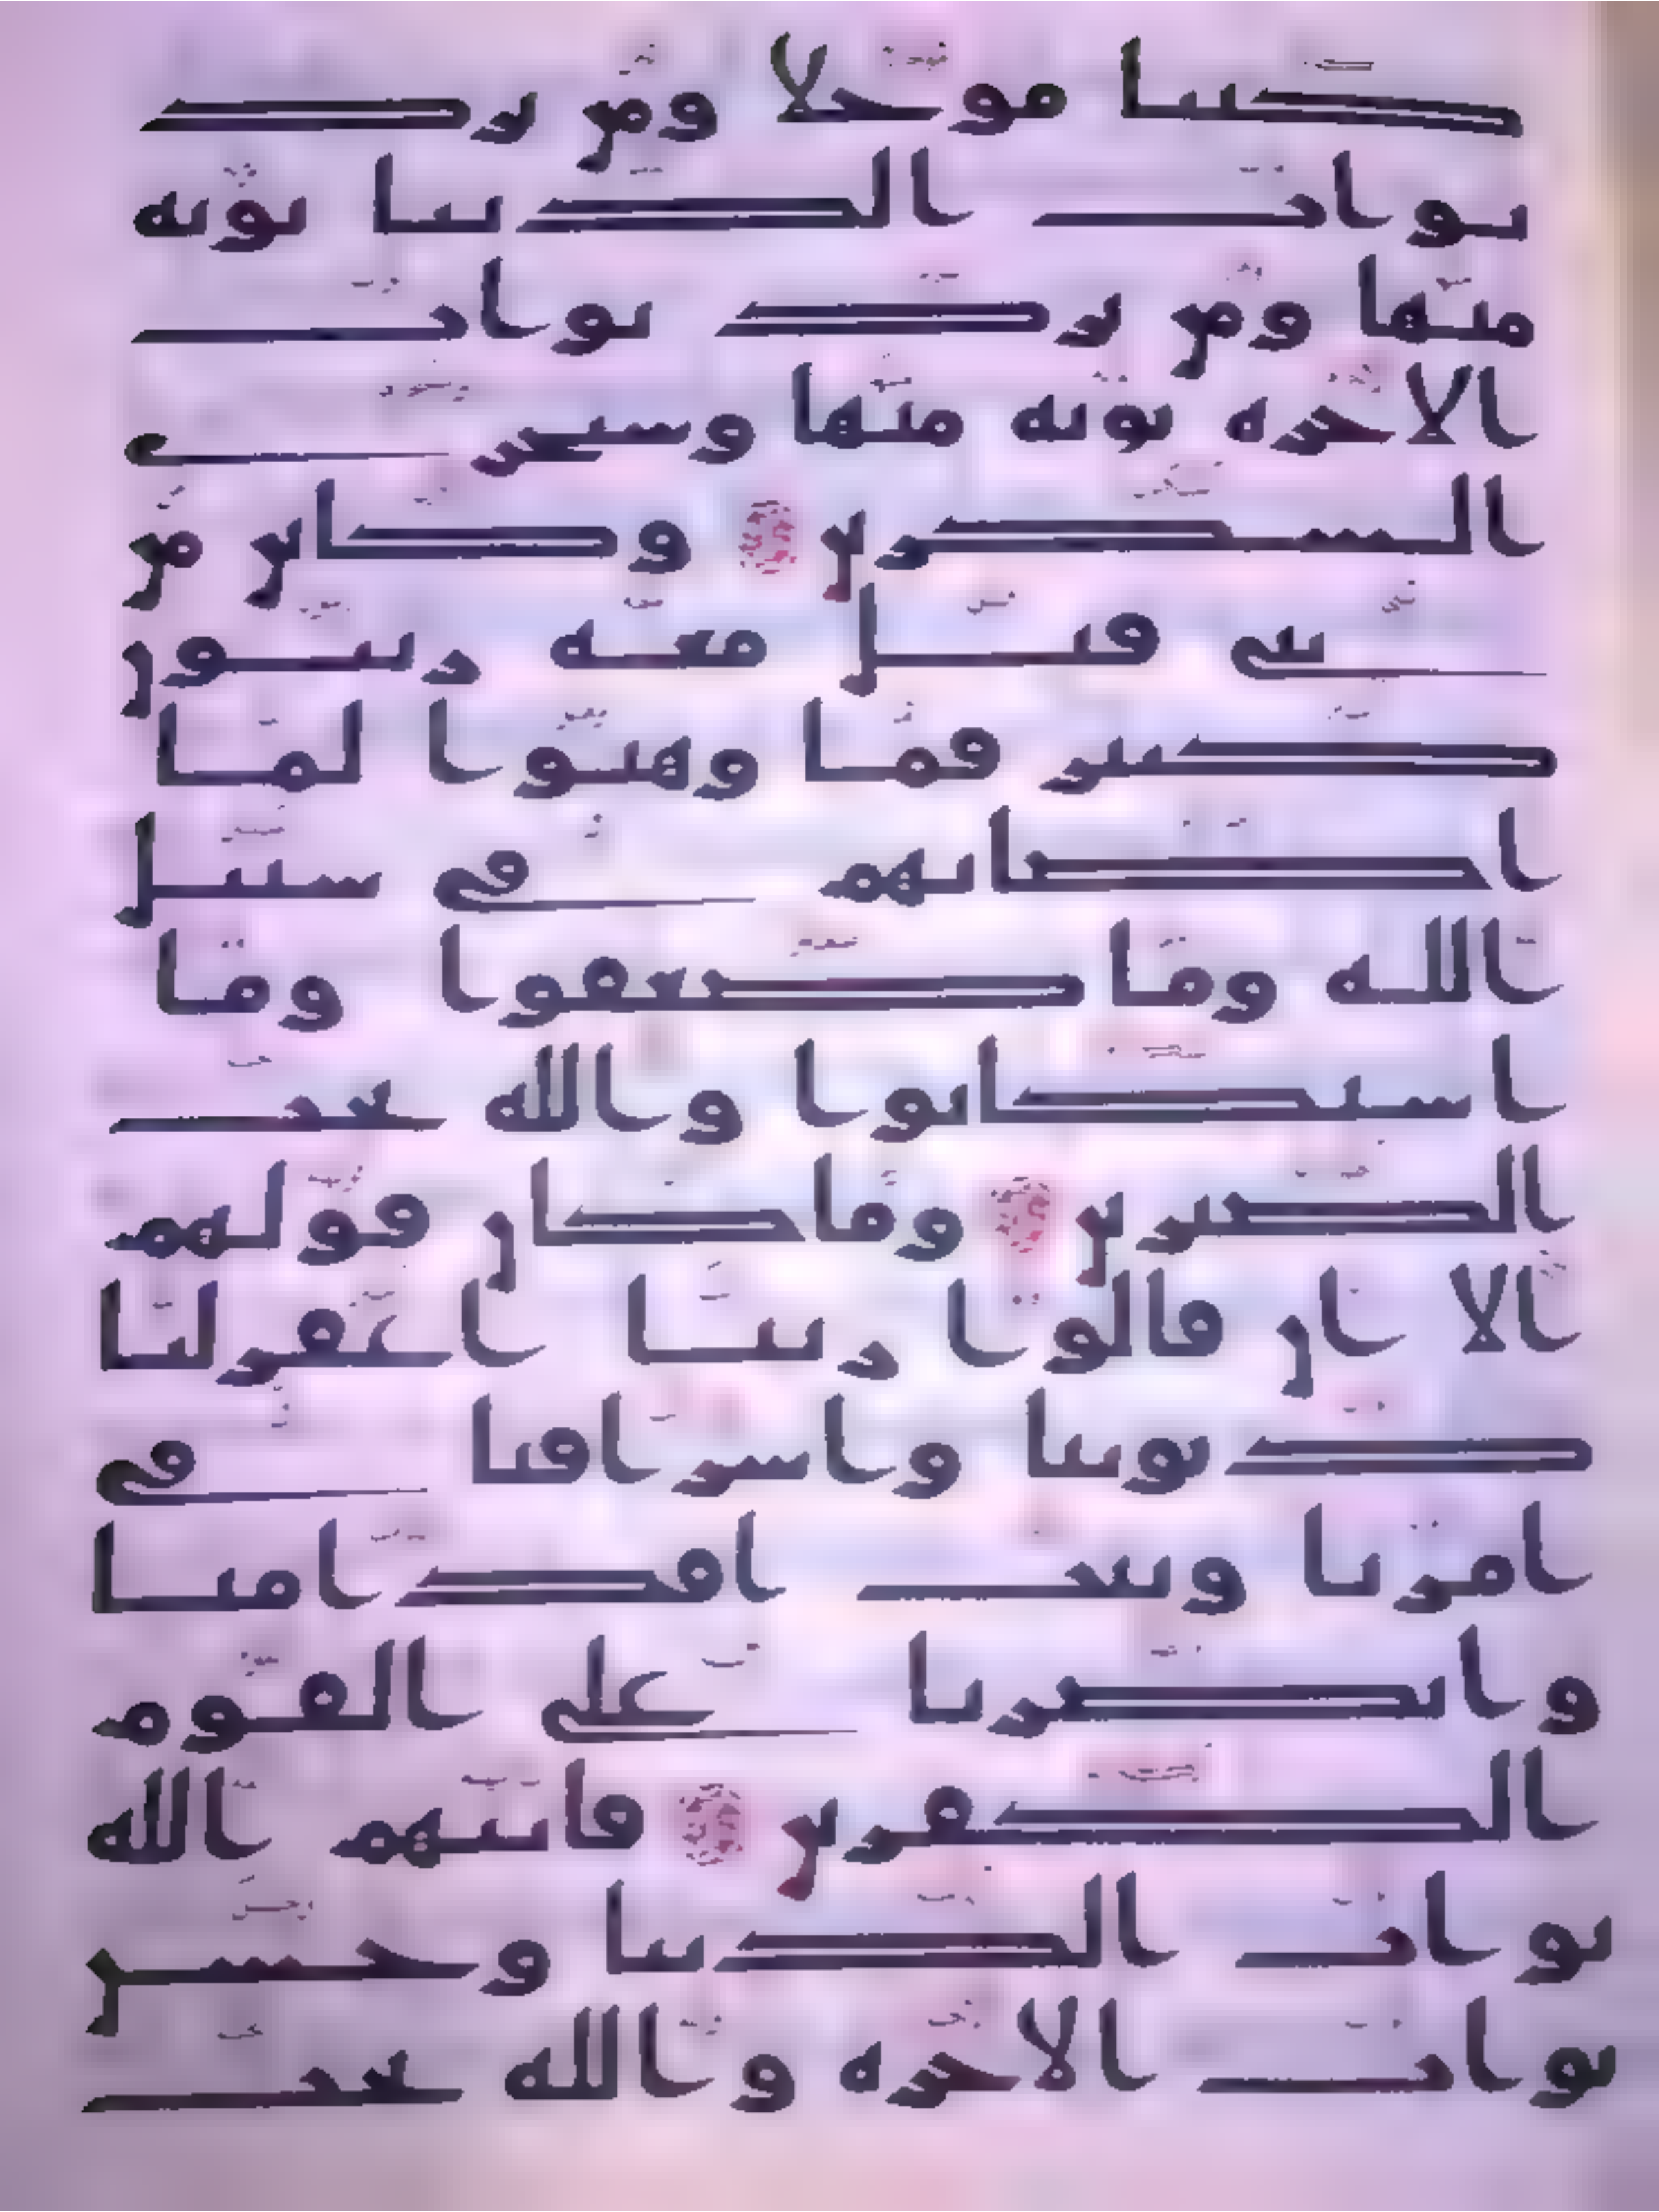 كتبا موجلا ومن يرد
ثواب الدنيا نوته
منها ومن يرد ثواب
الاخره نوته منها وسنجزي
الشكرين وكاين من
نبي قتل معه ربيون
كثير فما وهنوا لما
اصابهم في سبيل
الله وما ضعفوا وما
استكانوا والله يحب
الصبرين وما كان قولهم
الا ان قالوا ربنا اغفر لنا
ذنوبنا واسرافنا في
امرنا وثبت اقدامنا
وانصرنا على القوم
الكفرين فاتيهم الله
ثواب الدنيا وحسن
ثواب الاخره والله يحب